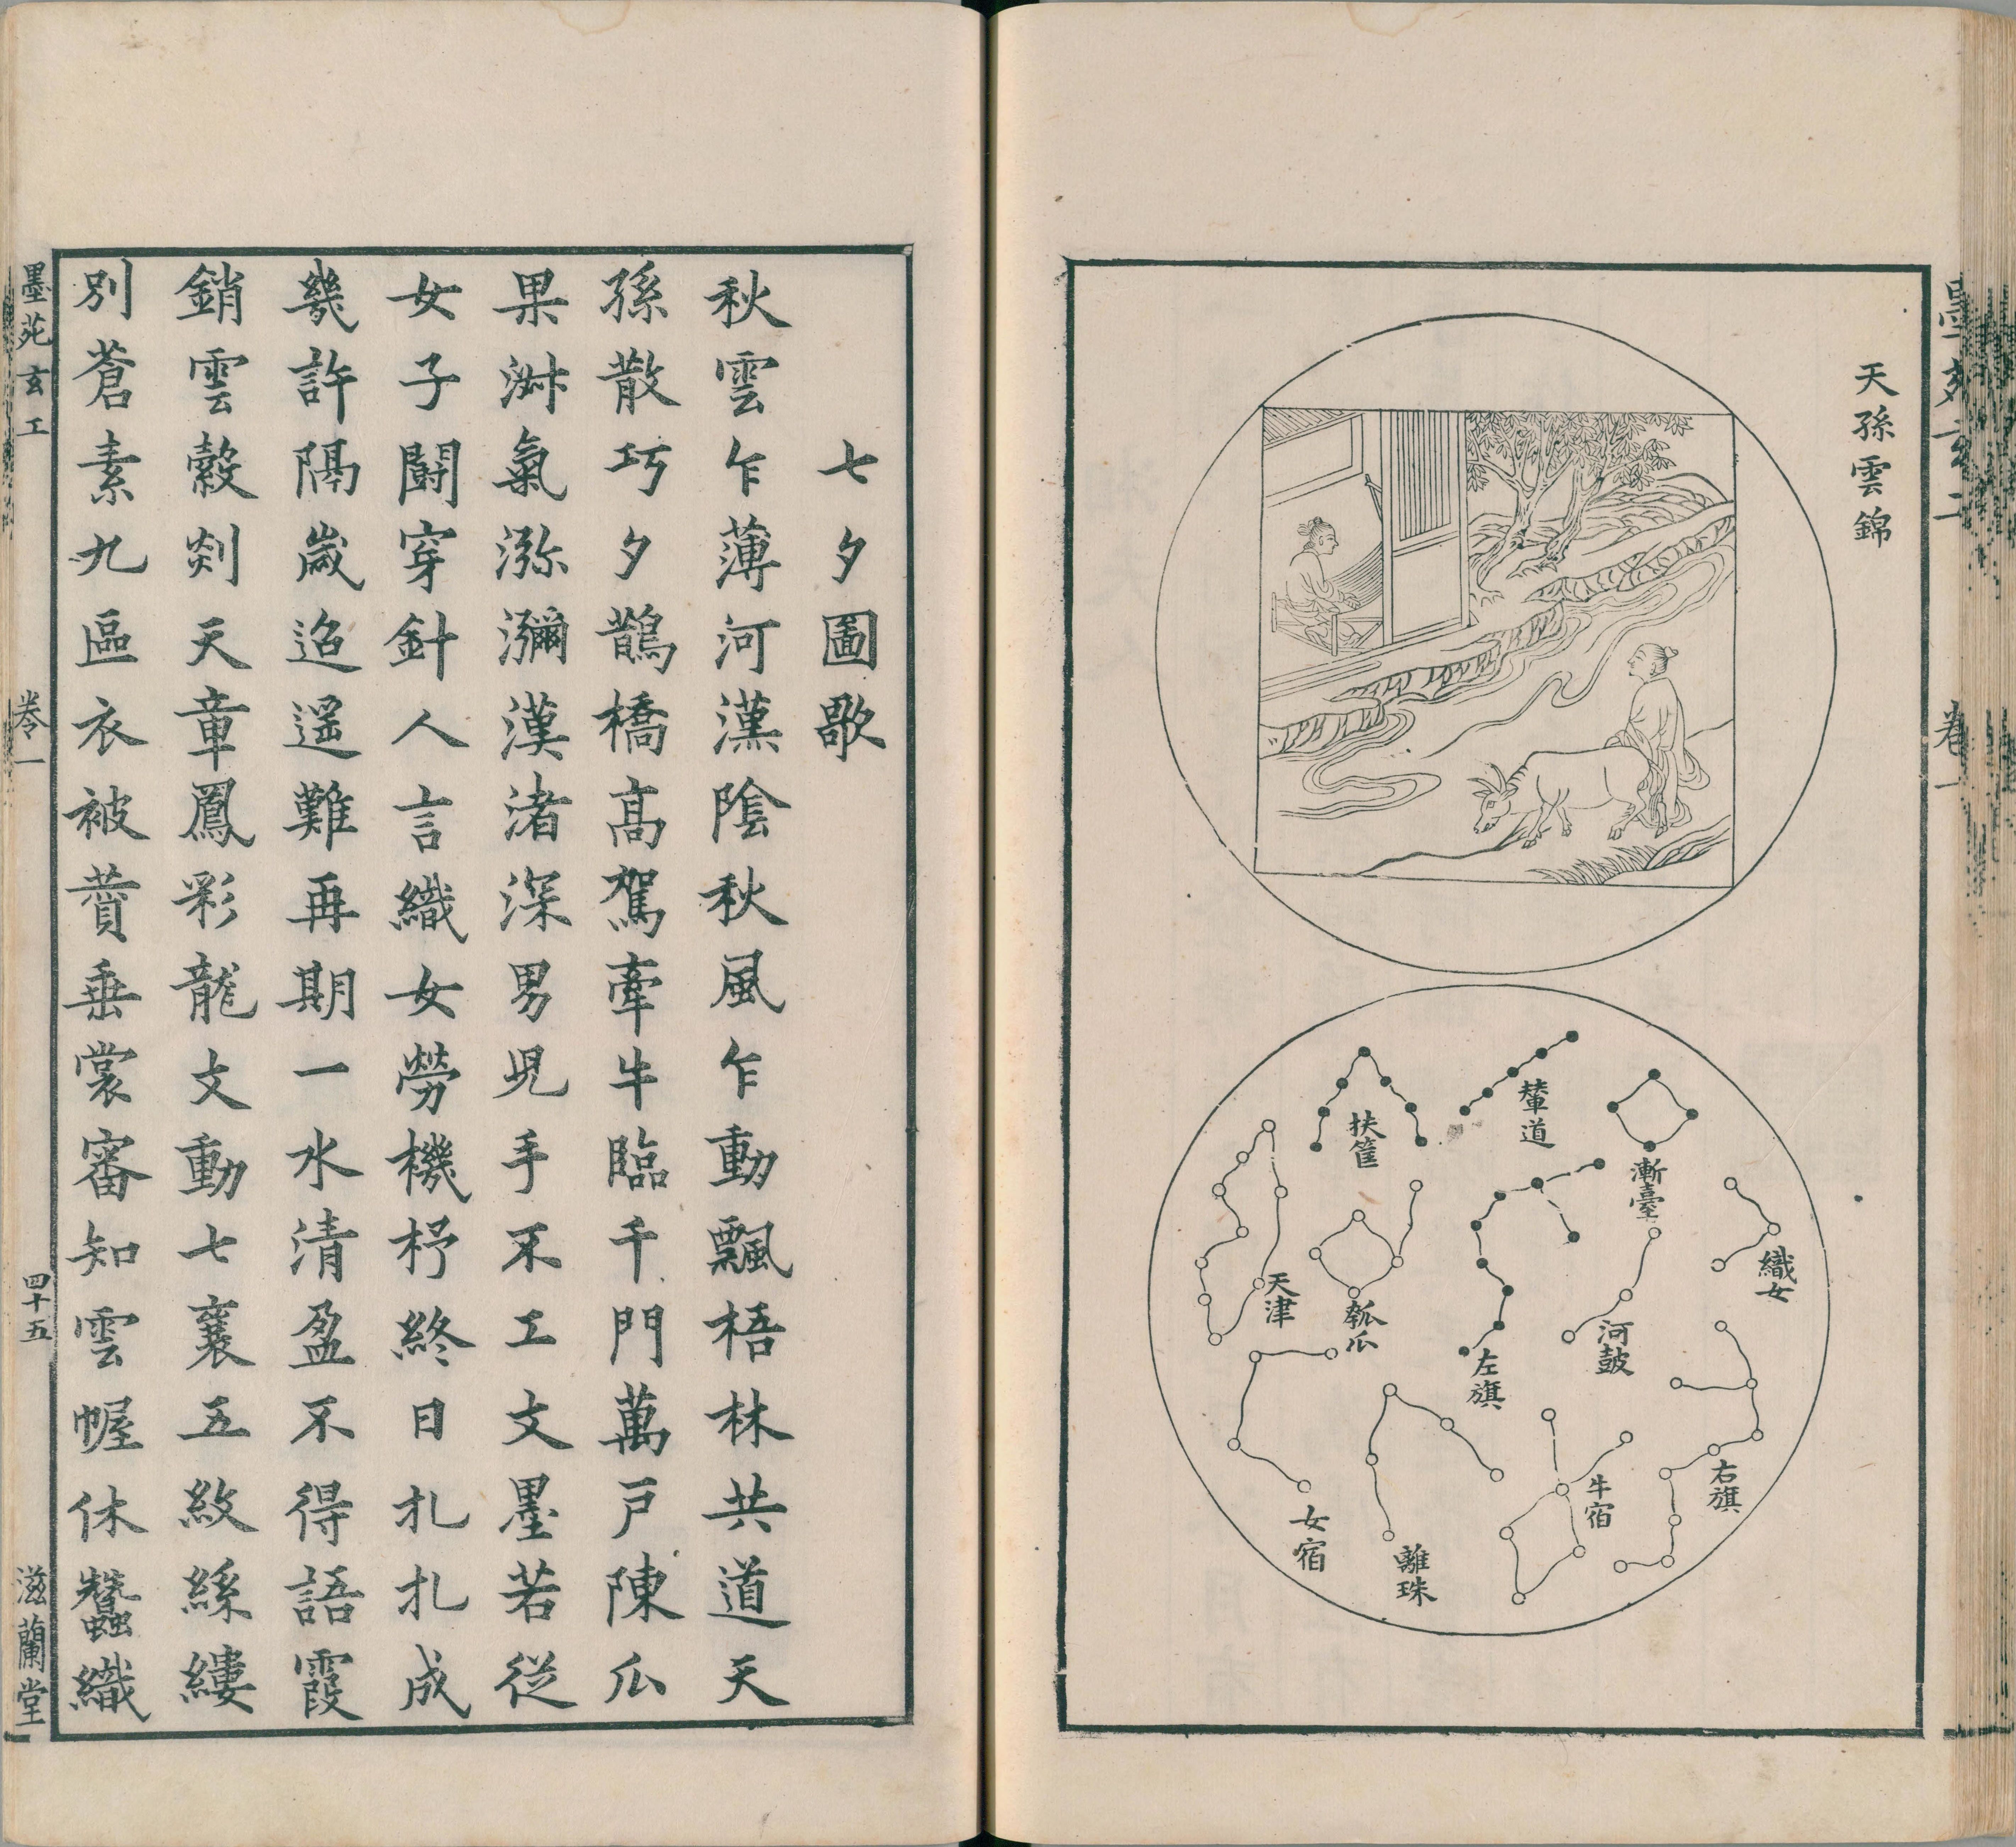 天孫雲錦
扶筐
輦道
漸臺
織女
天津
瓠瓜
左旗
河鼓
右旗
女宿
離珠
牛宿
七夕圖歌
秋雲乍薄河漢陰秋風乍動飄梧林共道天
孫散巧夕鵲橋高駕牽牛臨千門萬戶陳瓜
果淋氣瀰瀰漢渚深男兒手不工文墨若從
女子鬪穿針人言織女勞機杼終日扎扎成
幾許隔歲迢遥難再期一水清盈不得語霞
銷雲縠剡天章鳳彩龍文動七襄五紋絲縷
別蒼素九區衣被賁垂裳審知雲幄休蠶織
墨苑玄工
卷一
四十五
滋蘭堂